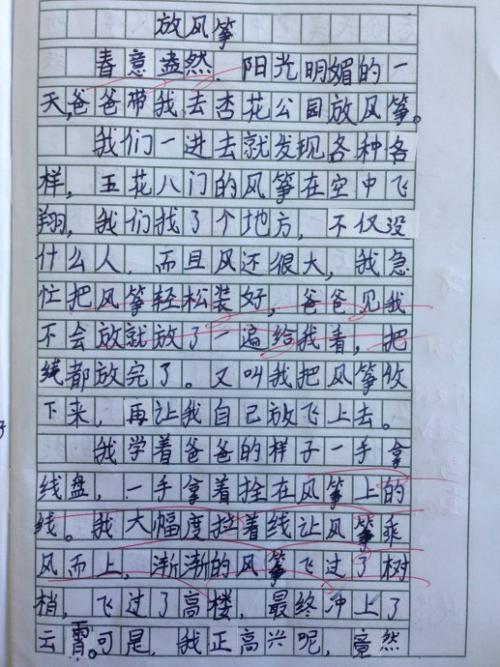 放风筝
春意盎然、阳光明媚的一
天,爸爸带我去杏花公园放风筝。
我们一进去就发现各种各
样，五花八门的风筝在空中飞
翔，我们找了个地方，不仅没
什么人，而且风还很大，我急
忙把风筝轻松装好，爸爸见我
不会放就放了一遍给我看，把
线都放完了。又叫我把风筝收
下来，再让我自己放飞上去。
我学着爸爸的样子一手拿
线盘，一手拿着拴在风筝上的
线。我大幅度拉着线让风筝乘
风而上，渐渐的风筝飞过了树
梢，飞过了高楼，最终冲上了
云霄。可是，我正高兴呢，竟然